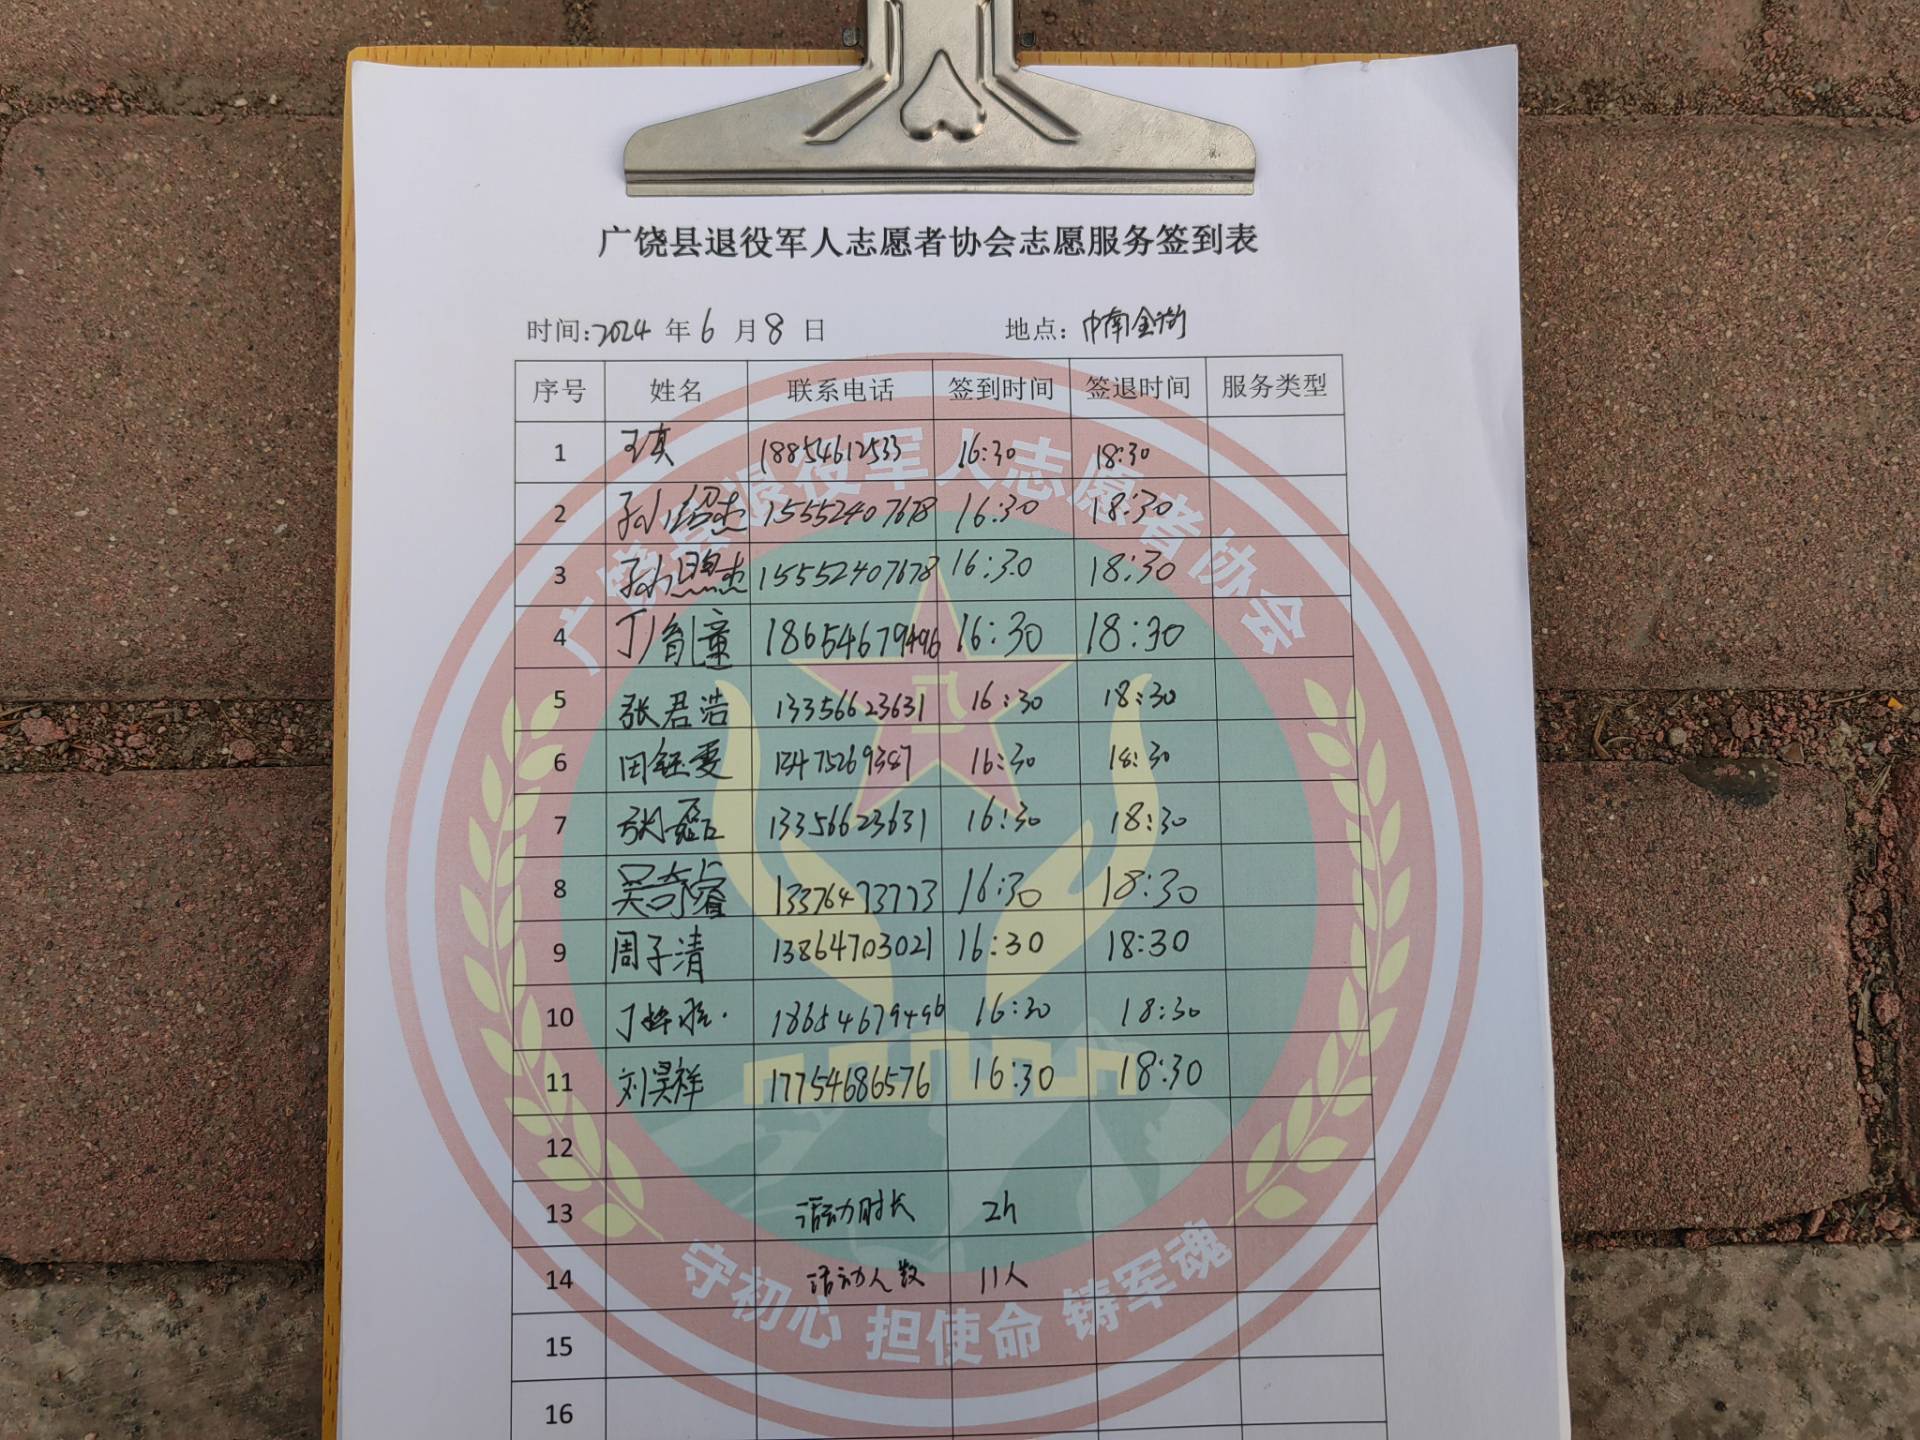 广饶县退役军人志愿者协会志愿服务签到表
时间:2024 年 6 月 8 日 地点: 中南金街
序号 姓名 联系电话 签到时间 签退时间 服务类型
1 王真 18854612533 16:30 18:30
2 孙绍杰 15552407678 16:30 18:30
3 孙照杰 15552407678 16:30 18:30
4 丁胤童 18654679496 16:30 18:30
5 张君浩 13356623631 16:30 18:30
6 田钰雯 13475269387 16:30 18:30
7 张磊 13356623631 16:30 18:30
8 吴奇睿 13376473773 16:30 18:30
9 周子清 13864703021 16:30 18:30
10 丁 18654679496 16:30 18:30
11 刘昊祥 17754686576 16:30 18:30
12
13 活动时长 2h
14 活动人数 11人
15
16
广饶县退役军人志愿者协会
八一
守初心 担使命 铸军魂